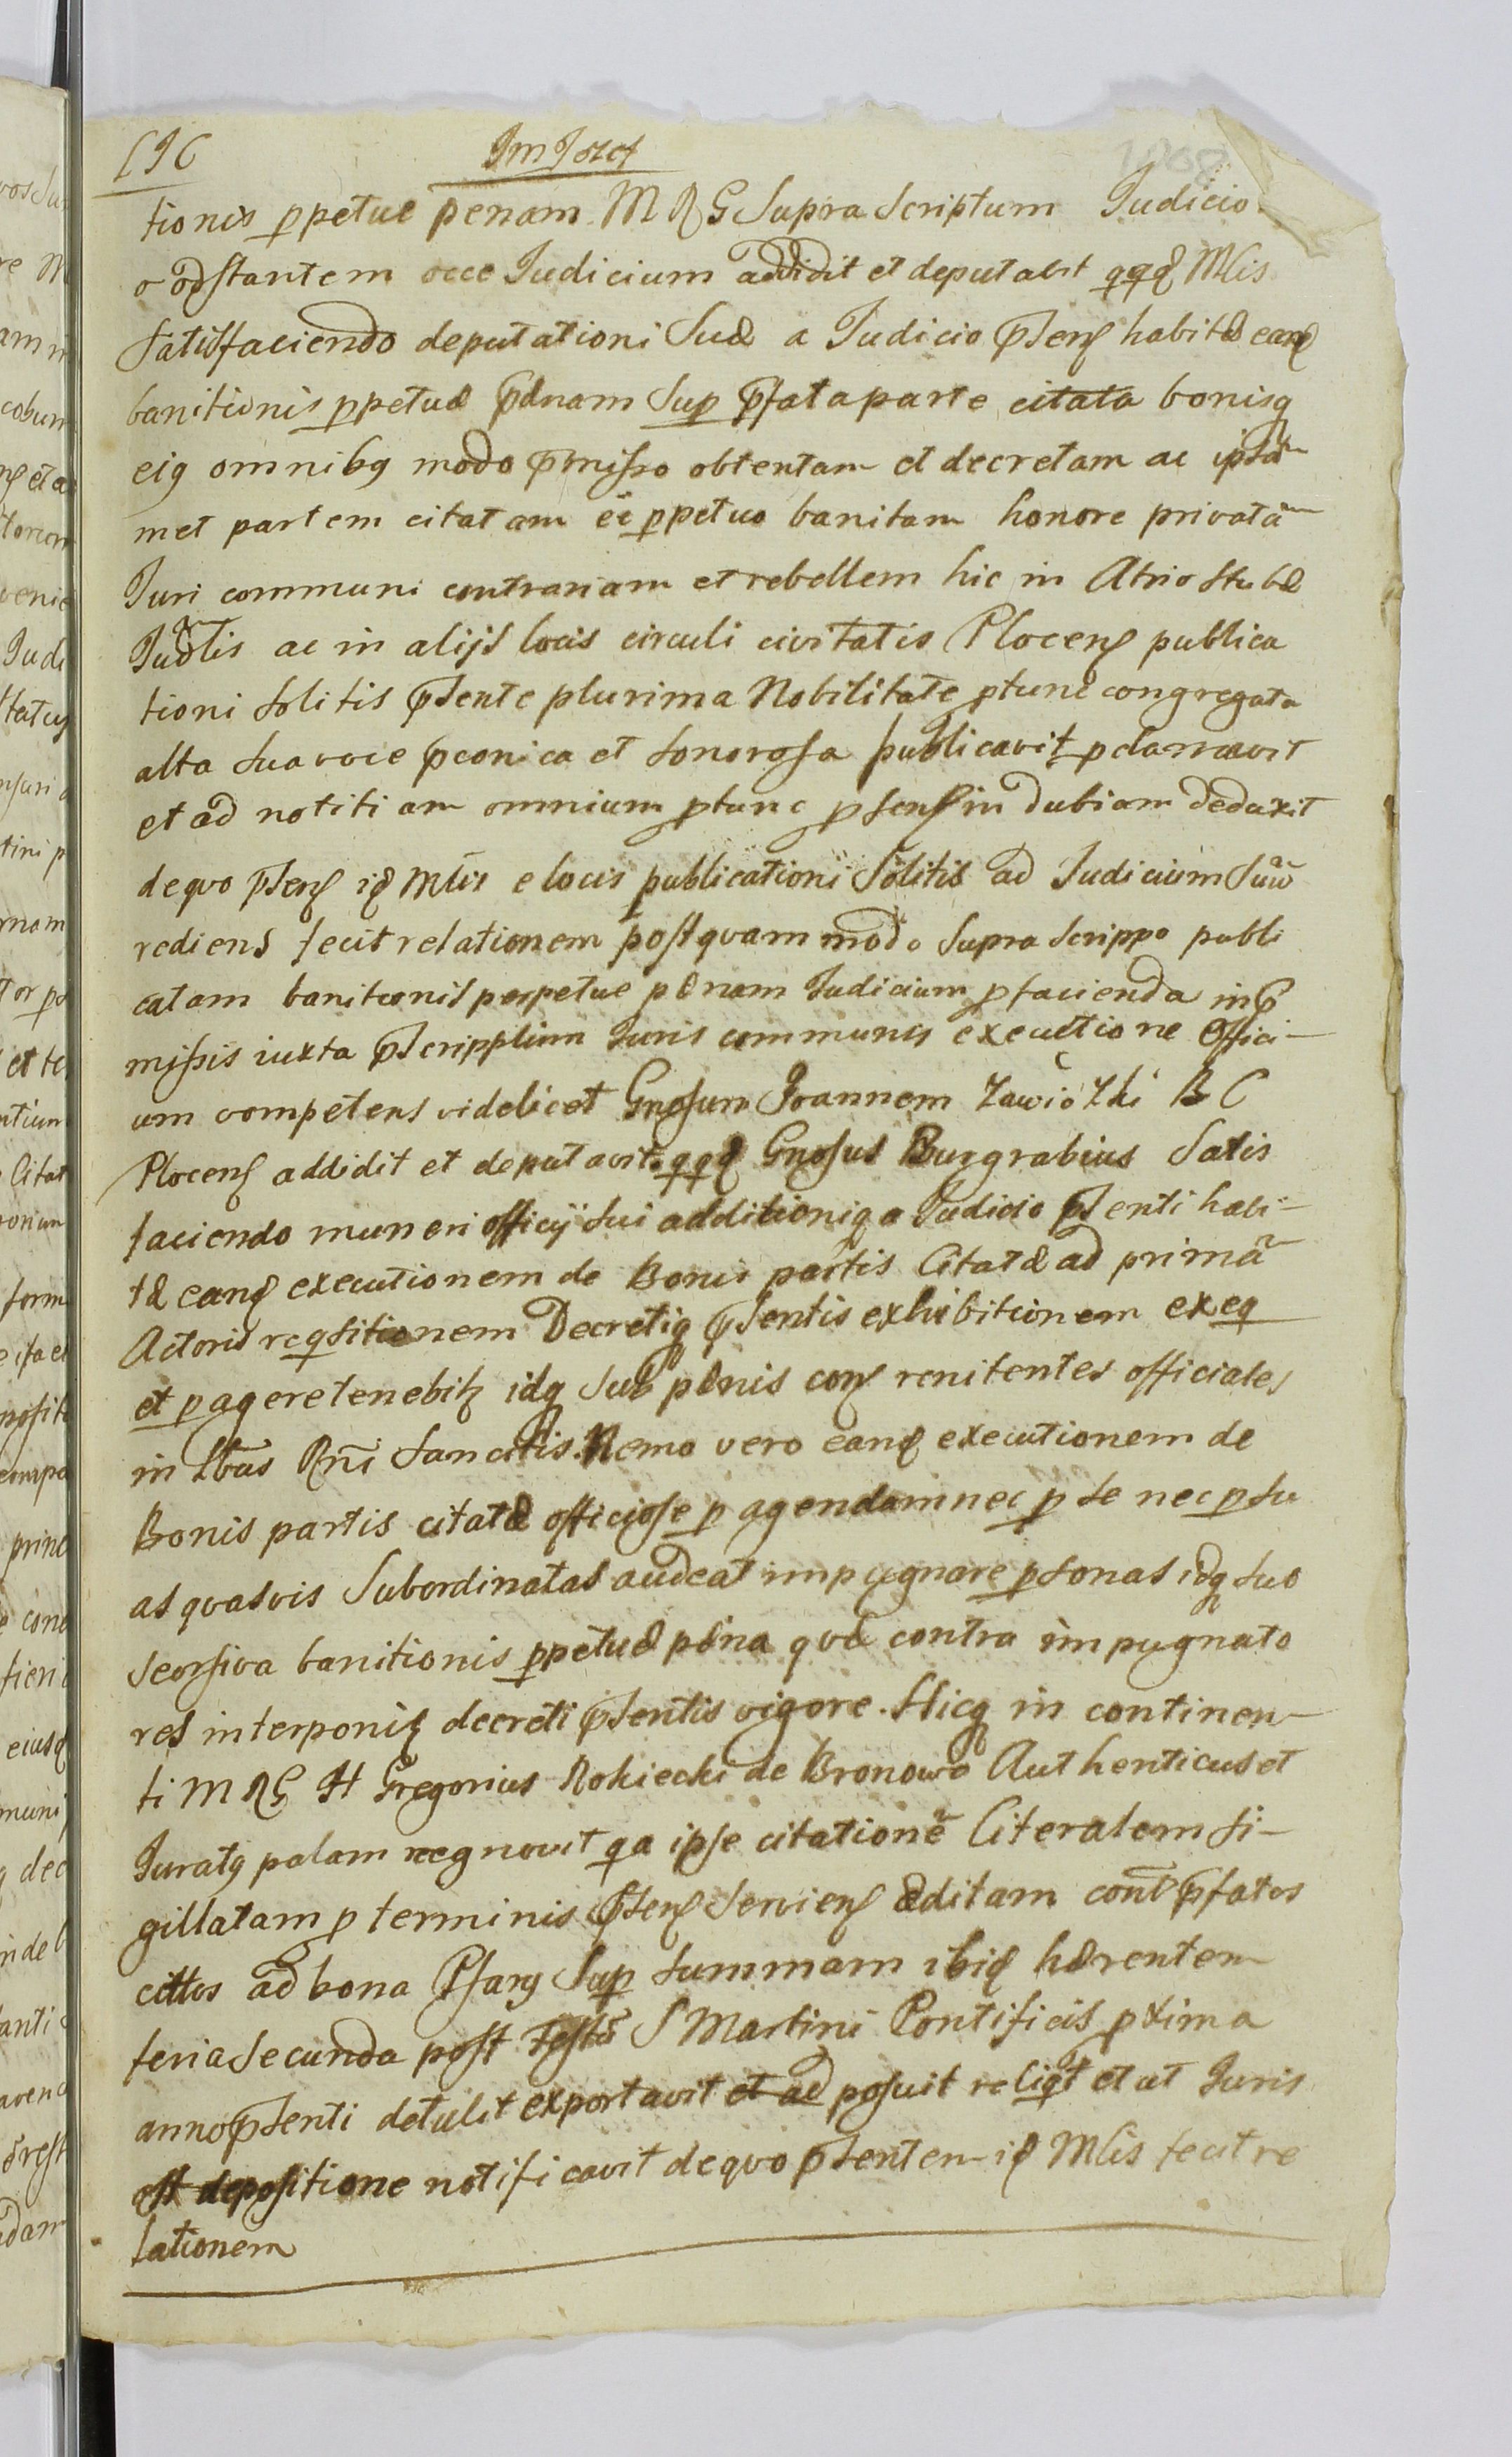 tionis ppetue penam M R G Supra Scriptum Judicio
o adstantem Judicium addidit et deputavit qqq Mlis
satisfaciendo deputationi Suæ a Judicio pñtens habitæ eanq
banitionis ppetuæ pænam Sup pfata parte citata bonisq
eiq omnibq modo pmisso obtentam et decretam ac ipsam
met partem citatam ee ppetuo banitam honore privatã
Juri communi contrariam et rebellem hic in Atrio stubæ
Judlis ac in alijs locis circuli civitatis Plocens publica
tioni solitis psente plurima Nobilitate ptunc congregata
alta sua voce pconica et sonorosa publicavit pclamavit
et ad notitiam omnium ptunc psens in dubiam deduxit
de quo psens iq Mlis e locis publicationi Solitis ad Judicium Suũ
rediens fecit relationem post quam modo Supra Scrippo publi
catam banitionis perpetue pænam Judicium p facienda in p
missis iuxta pscripptum Juris communis executione offici-
um competens videlicet Gnosum Joannem B C
Plocens addidit et deputavit qqq Gnosus Burgrabius Satis
faciendo muneri officij sui additioniq a Judicio psenti habi-
tæ eanq executionem de Bonis partis Citatæ ad primã
Actoris reqsitionem Decretiq psentis exhibitionem exeq
et pagere tenebitz idq Sub pænis cons renitentes officiales
in Lbus Rñi sancitis. Nemo vero eanq executionem de
Bonis partis citatæ officiose p agendam nec p se nec p su
as quasvis Subordinatas audeat impugnare psonas idq sub
seorsiva banitionis ppetuæ pæna quæ contra impugnato
res interponitz decreti psentis vigore. Hicq in continen-
ti M R G H Gregorius Rokiecki de Bronowo Authenticus et
Juratq palam recgnovit qa ipse citationẽ Literalem si-
gillatam p terminis psens Serviens æditam cont pfatos
cittos ad bona Psary Sup summam ibiq hærentem
feria secunda post Festũ S Martini Pontificis pxima
anno psenti detulit exportavit et ad posuit reliqt et ut Juris
est depositione notificavit de quo psentem iq Mlis fecit re
lationem